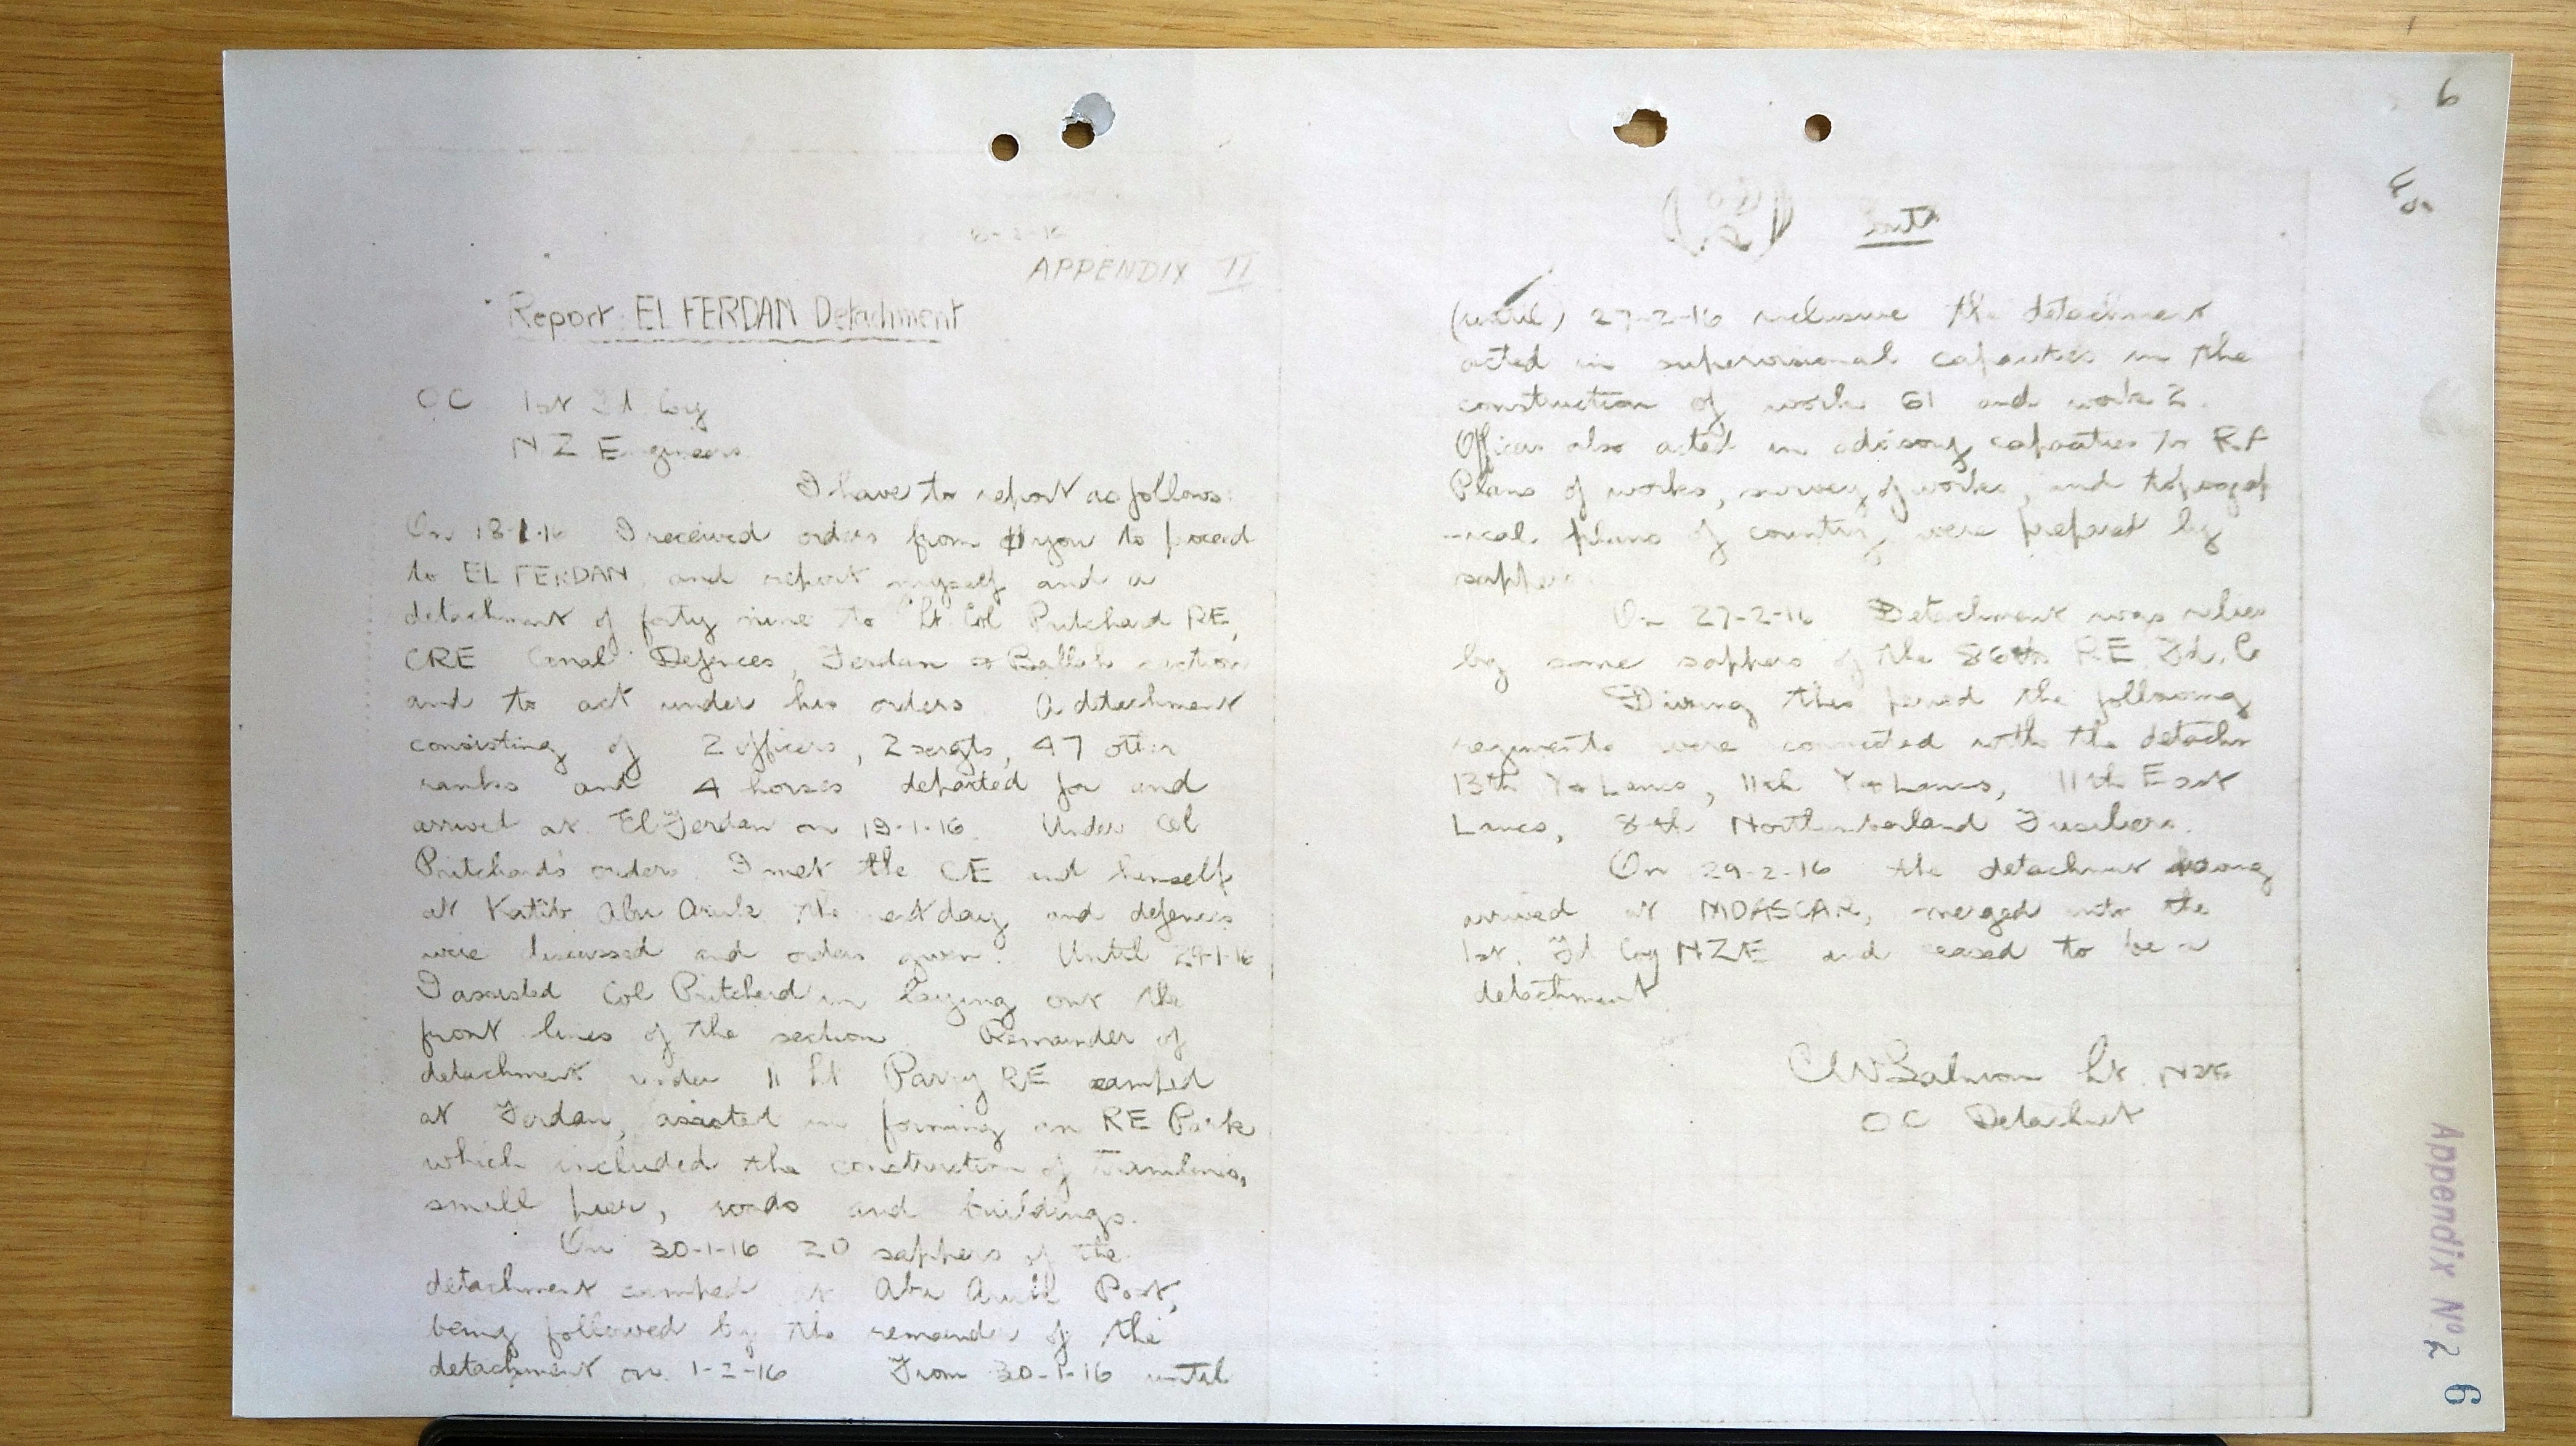 APPENDIX II
Report: EL FERDAN Detachment
OC 1st Fd. Coy
NZ Engineers
I have to report as follows:
On 18-1-16 I received orders from you to proceed
to EL FERDAN, and report myself and a
detachment of forty nine to Lt. Col Pritchard RE,
CRE Canal Defences, Ferdan & Ballah section
and to act under his orders. A detachment
consisting of 2 officers, 2 sergts, 47 other
ranks and 4 horses departed for and
arrived at El Ferdan on 19-1-16. Under Col
Pritchards orders I met the CE and himself
at Katib Abu Aruk the next day and defences
were discussed and orders given. Until 29-1-16
I assisted Col Pritchard in laying out the
front lines of the section. Remainder of
detachment under II Lt Parry RE camped
at Ferdan, assisted in forming an RE Park
which included the construction of tramlines,
small pier, roads and buildings.
On 30-1-16 20 sappers of the
detachment camped at Abu Aruk Post,
being followed by the remainder of the
detachment on 1-2-16 From 30-1-16 until
6
45
(2) contd
(until) 27-2-16 inclusive the detachment
acted in supervisional capacities in the
construction of work 61 and work 2.
Officers also acted in advisory capacities to RA
Plans of works, survey of works, and topograph
-ical plans of country were prepared by
sappers.
On 27-2-16 Detachment was relieved
by some sappers of the 86th RE Fd. Co
During this period the following
regiments were connected with the detachm
13th Y & Lancs, 11th Y & Lancs, 11th East
Lancs, 8th Northumberland Fusiliers.
On 29-2-16 the detachment having
arrived at MOASCAR, merged into the
1st. Fd Coy NZE and ceased to be a
detachment
CW Salmon Lt. NZE
OC Detachmet
Appendix No 2
6